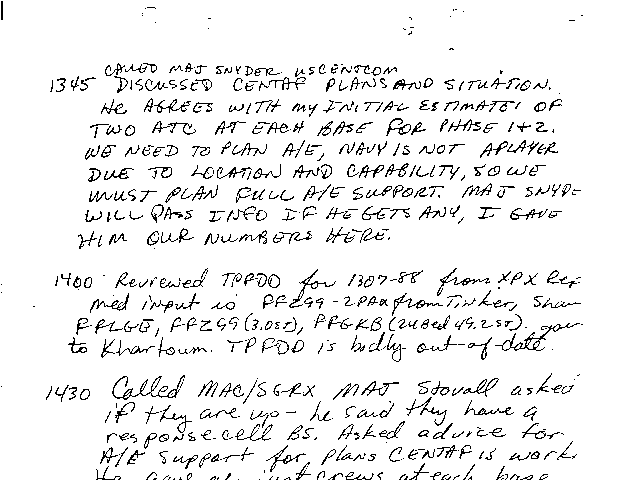 CALLED MAJ SNYDER USCENTCOM
1345 DISCUSSED CENTAF PLANS AND SITUATION.
HE AGREES WITH MY INITIAL ESTIMATES OF
TWO ATC AT EACH BASE FOR PHASE 1+2.
WE NEED TO PLAN A/E, NAVY IS NOT A PLAYER
DUE TO LOCATION AND CAPABILITY, SO WE
MUST PLAN FULL A/E SUPPORT. MAJ SNYDE
WILL PASS INFO IF HE GETS ANY, I GAVE
HIM OUR NUMBERS HERE.
1400 Reviewed TPFDD for 1307-88 from XPX Rer
med input is FFZ99-2PAX from Tinker, Shaw
FFLGE, FFZ99 (3.0ST), FFGKB (24Bed 49.2ST).
to Khartoum. TPFDD is badly out-of-date.
1430 Called MAC/SGRX MAJ Stovall asked
if they are up - he said they have a
response cell BS. Asked advice for
A/E Support for plans CENTAF is work
crews at each base